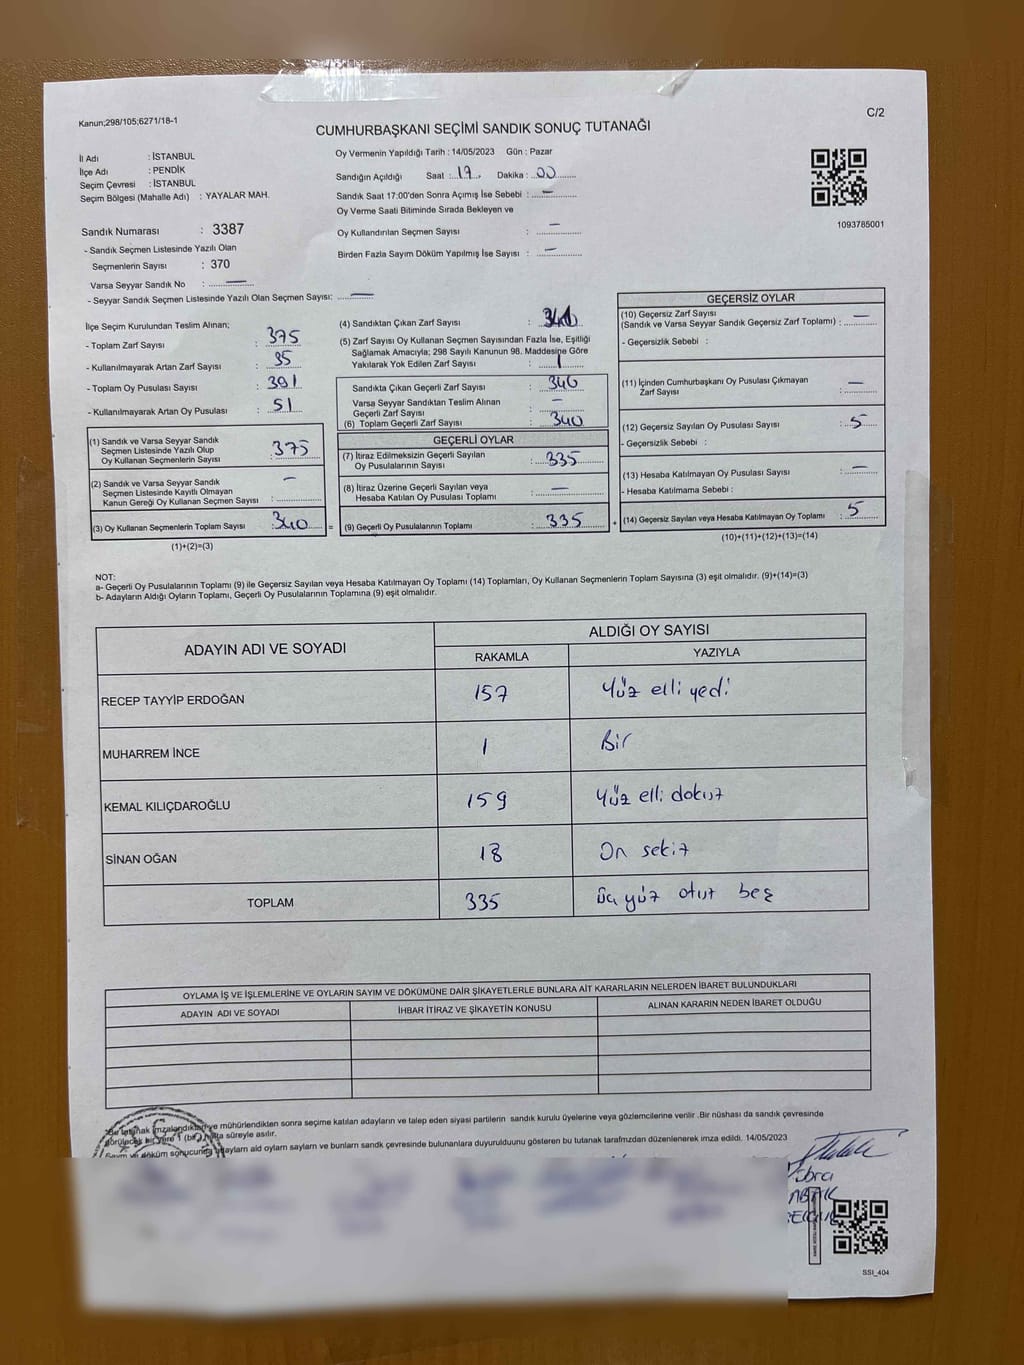 Kanun;298/105;6271/18-1
C/2
CUMHURBAŞKANI SEÇİMİ SANDIK SONUÇ TUTANAĞI
İl Adı : İSTANBUL
İlçe Adı : PENDİK
Seçim Çevresi : İSTANBUL
Seçim Bölgesi (Mahalle Adı) : YAYALAR MAH.
Sandık Numarası : 3387
- Sandık Seçmen Listesinde Yazılı Olan
Seçmenlerin Sayısı : 370
Varsa Seyyar Sandık No : —
- Seyyar Sandık Seçmen Listesinde Yazılı Olan Seçmen Sayısı: —
Oy Vermenin Yapıldığı Tarih : 14/05/2023 Gün : Pazar
Sandığın Açıldığı Saat : 17 Dakika : 00
Sandık Saat 17:00'den Sonra Açımış İse Sebebi : —
Oy Verme Saati Bitiminde Sırada Bekleyen ve
Oy Kullandırılan Seçmen Sayısı : —
Birden Fazla Sayım Döküm Yapılmış İse Sayısı : —
1093785001
İlçe Seçim Kurulundan Teslim Alınan;
- Toplam Zarf Sayısı : 375
- Kullanılmayarak Artan Zarf Sayısı : 35
- Toplam Oy Pusulası Sayısı : 391
- Kullanılmayarak Artan Oy Pusulası : 51
(1) Sandık ve Varsa Seyyar Sandık
Seçmen Listesinde Yazılı Olup
Oy Kullanan Seçmenlerin Sayısı : 375
(2) Sandık ve Varsa Seyyar Sandık
Seçmen Listesinde Kayıtlı Olmayan
Kanun Gereği Oy Kullanan Seçmen Sayısı : —
(3) Oy Kullanan Seçmenlerin Toplam Sayısı : 340 =
(1)+(2)=(3)
(4) Sandıktan Çıkan Zarf Sayısı :
(5) Zarf Sayısı Oy Kullanan Seçmen Sayısından Fazla İse, Eşitliği
Sağlamak Amacıyla; 298 Sayılı Kanunun 98. Maddesine Göre
Yakılarak Yok Edilen Zarf Sayısı : 1
Sandıkta Çıkan Geçerli Zarf Sayısı : 340
Varsa Seyyar Sandıktan Teslim Alınan
Geçerli Zarf Sayısı : —
(6) Toplam Geçerli Zarf Sayısı : 340
GEÇERLİ OYLAR
(7) İtiraz Edilmeksizin Geçerli Sayılan
Oy Pusulalarının Sayısı : 335
(8) İtiraz Üzerine Geçerli Sayılan veya
Hesaba Katılan Oy Pusulası Toplamı : —
(9) Geçerli Oy Pusulalarının Toplamı : 335 +
GEÇERSİZ OYLAR
(10) Geçersiz Zarf Sayısı
(Sandık ve Varsa Seyyar Sandık Geçersiz Zarf Toplamı) : —
- Geçersizlik Sebebi :
(11) İçinden Cumhurbaşkanı Oy Pusulası Çıkmayan
Zarf Sayısı : —
(12) Geçersiz Sayılan Oy Pusulası Sayısı : 5
- Geçersizlik Sebebi :
(13) Hesaba Katılmayan Oy Pusulası Sayısı : —
- Hesaba Katılmama Sebebi :
(14) Geçersiz Sayılan veya Hesaba Katılmayan Oy Toplamı : 5
(10)+(11)+(12)+(13)=(14)
NOT:
a- Geçerli Oy Pusulalarının Toplamı (9) ile Geçersiz Sayılan veya Hesaba Katılmayan Oy Toplamı (14) Toplamları, Oy Kullanan Seçmenlerin Toplam Sayısına (3) eşit olmalıdır. (9)+(14)=(3)
b- Adayların Aldığı Oyların Toplamı, Geçerli Oy Pusulalarının Toplamına (9) eşit olmalıdır.
ADAYIN ADI VE SOYADI ALDIĞI OY SAYISI
RAKAMLA YAZIYLA
RECEP TAYYİP ERDOĞAN 157 Yüz elli yedi
MUHARREM İNCE 1 Bir
KEMAL KILIÇDAROĞLU 159 Yüz elli dokuz
SİNAN OĞAN 18 On sekiz
TOPLAM 335 Üç yüz otuz beş
OYLAMA İŞ VE İŞLEMLERİNE VE OYLARIN SAYIM VE DÖKÜMÜNE DAİR ŞİKAYETLERLE BUNLARA AİT KARARLARIN NELERDEN İBARET BULUNDUKLARI
ADAYIN ADI VE SOYADI İHBAR İTİRAZ VE ŞİKAYETİN KONUSU ALINAN KARARIN NEDEN İBARET OLDUĞU
*Bu tutanak imzalandıktan ve mühürlendikten sonra seçime katılan adayların ve talep eden siyasi partilerin sandık kurulu üyelerine veya gözlemcilerine verilir .Bir nüshası da sandık çevresinde
görülecek bir yere 1 (bir) hafta süreyle asılır.
Sayım ve döküm sonucunda adayların aldı oyların sayların ve bunların sandk çevresinde bulunanlara duyurulduunu gösteren bu tutanak tarafmzdan düzenlenerek imza edildi. 14/05/2023
SSI_404